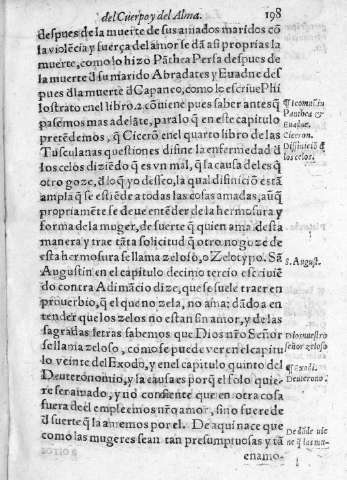 del Cuerpo y del Alma. 198
despues de la muerte de sus amados maridos cõ
la violẽcia y fuerça del amor se dã asi proprias la
muerte, como lo hizo Pãthea Persa despues de
la muerte đ su marido Abradates y Euadne des
pues đ la muerte đ Capaneo, como le escriue Phi
lostrato en el libro. 2. cõuiene pues saber antes q̃
pasemos mas adelãte, para lo q̃ en este capitulo
pretẽdemos, q̃ Cicerõ en el quarto libro de las
Tusculanas questiones difine la enfermedad đ
los celos diziẽdo q̃ es vn mal, q̃ la causa del es q̃
otro goze, đ lo q̃ yo desseo, la qual difiniciõ estã
ampla q̃ se estiẽde a todas las cosas amadas, aũq̃
propriamẽte se deue entẽder de la hermosura y
forma de la muger, de suerte q̃ quien ama desta
manera y trae tãta solicitud q̃ otro no goze de
esta hermosura se llama zeloso, o Zelotypo. Sã
Augustin en el capitulo decimo tercio escriuiẽ
do contra Adimãcio dize, que se suele traer en
prouerbio, q̃ el que no zela, no ama: dãdo a en
tender que los zelos no estan sin amor, y de las
sagradas letras sabemos que Dios nr̃o Señor
se llama zeloso, como se puede ver en el capitu
lo veinte del Exodo, y en el capitulo quinto del
Deuteronomio, y la causa es porq̃ el solo quie
re ser amado, y no consiente que en otra cosa
fuera de el empleemos nr̃o amor, sino fuere de
đ suerte q̃ la amemos por el. De aqui nace que
como las mugeres sean tan presumptuosas y tã
enamo-
Panthea &
Euadne.
Ciceron.
Difiniciõ đ
los celos.
S. August.
Dios nuestro
señor zeloso
¶ Exodi.
Deuterono.
De dõde vie
ne q̃ las mu-